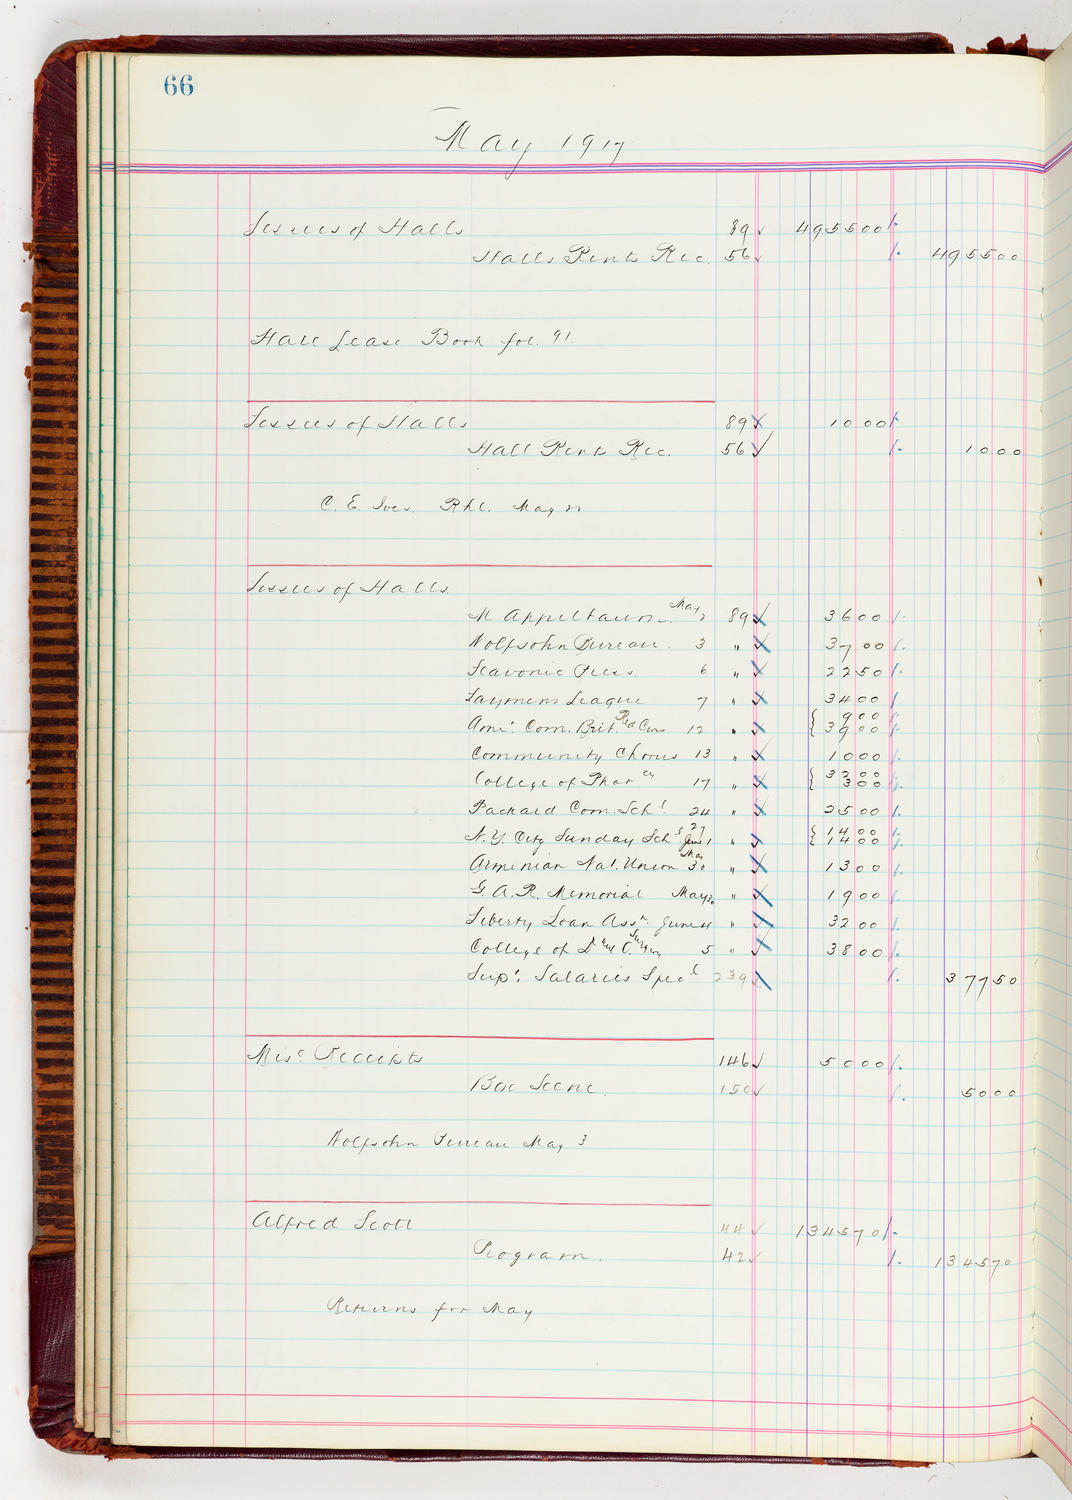 66
May 1917
Lessees of Halls 89 ✓ 4955 00
Halls Rents Rec. 56 ✓ 4955 00
Hall Lease Book fol. 91.
Lessees of Halls 89 ✓ 10 00
Hall Rents Rec. 56 ✓ 10 00
C. E. Ives. Rhl. May 21
Lessees of Halls.
M Appeltawn. May 2 89 ✓ 36 00
Wolfsohn Bureau. 3 " ✓ 37 00
Slavonic Press. 6 " ✓ 22 50
Laymens League 7 " ✓ 34 00
{ 9 00
Amr. Com. Brit. Red Cros 12 " ✓ { 39 00
Community Chorus 13 " ✓ 10 00
{ 32 00
College of Phar cy 17 " ✓ { 3 00
Packard Com. Schl 24 " ✓ 25 00
27 { 14 00
N.Y. City Sunday Schl June 1 " ✓ { 14 00
Armenian Nat. Union May 30 " ✓ 13 00
G. A. R. Memorial May 30 " ✓ 19 00
Liberty Loan Assn. June 4 " ✓ 32 00
College of D & O. Surgery 5 " ✓ 38 00
Supt. Salaries Specl 239 ✓ 377 50
Misc. Receipts 146 ✓ 50 00
Box Scene. 150 ✓ 50 00
Wolfsohn Bureau May 3
Alfred Scott 44 ✓ 1345 70
Program. 42 ✓ 1345 70
Returns for May